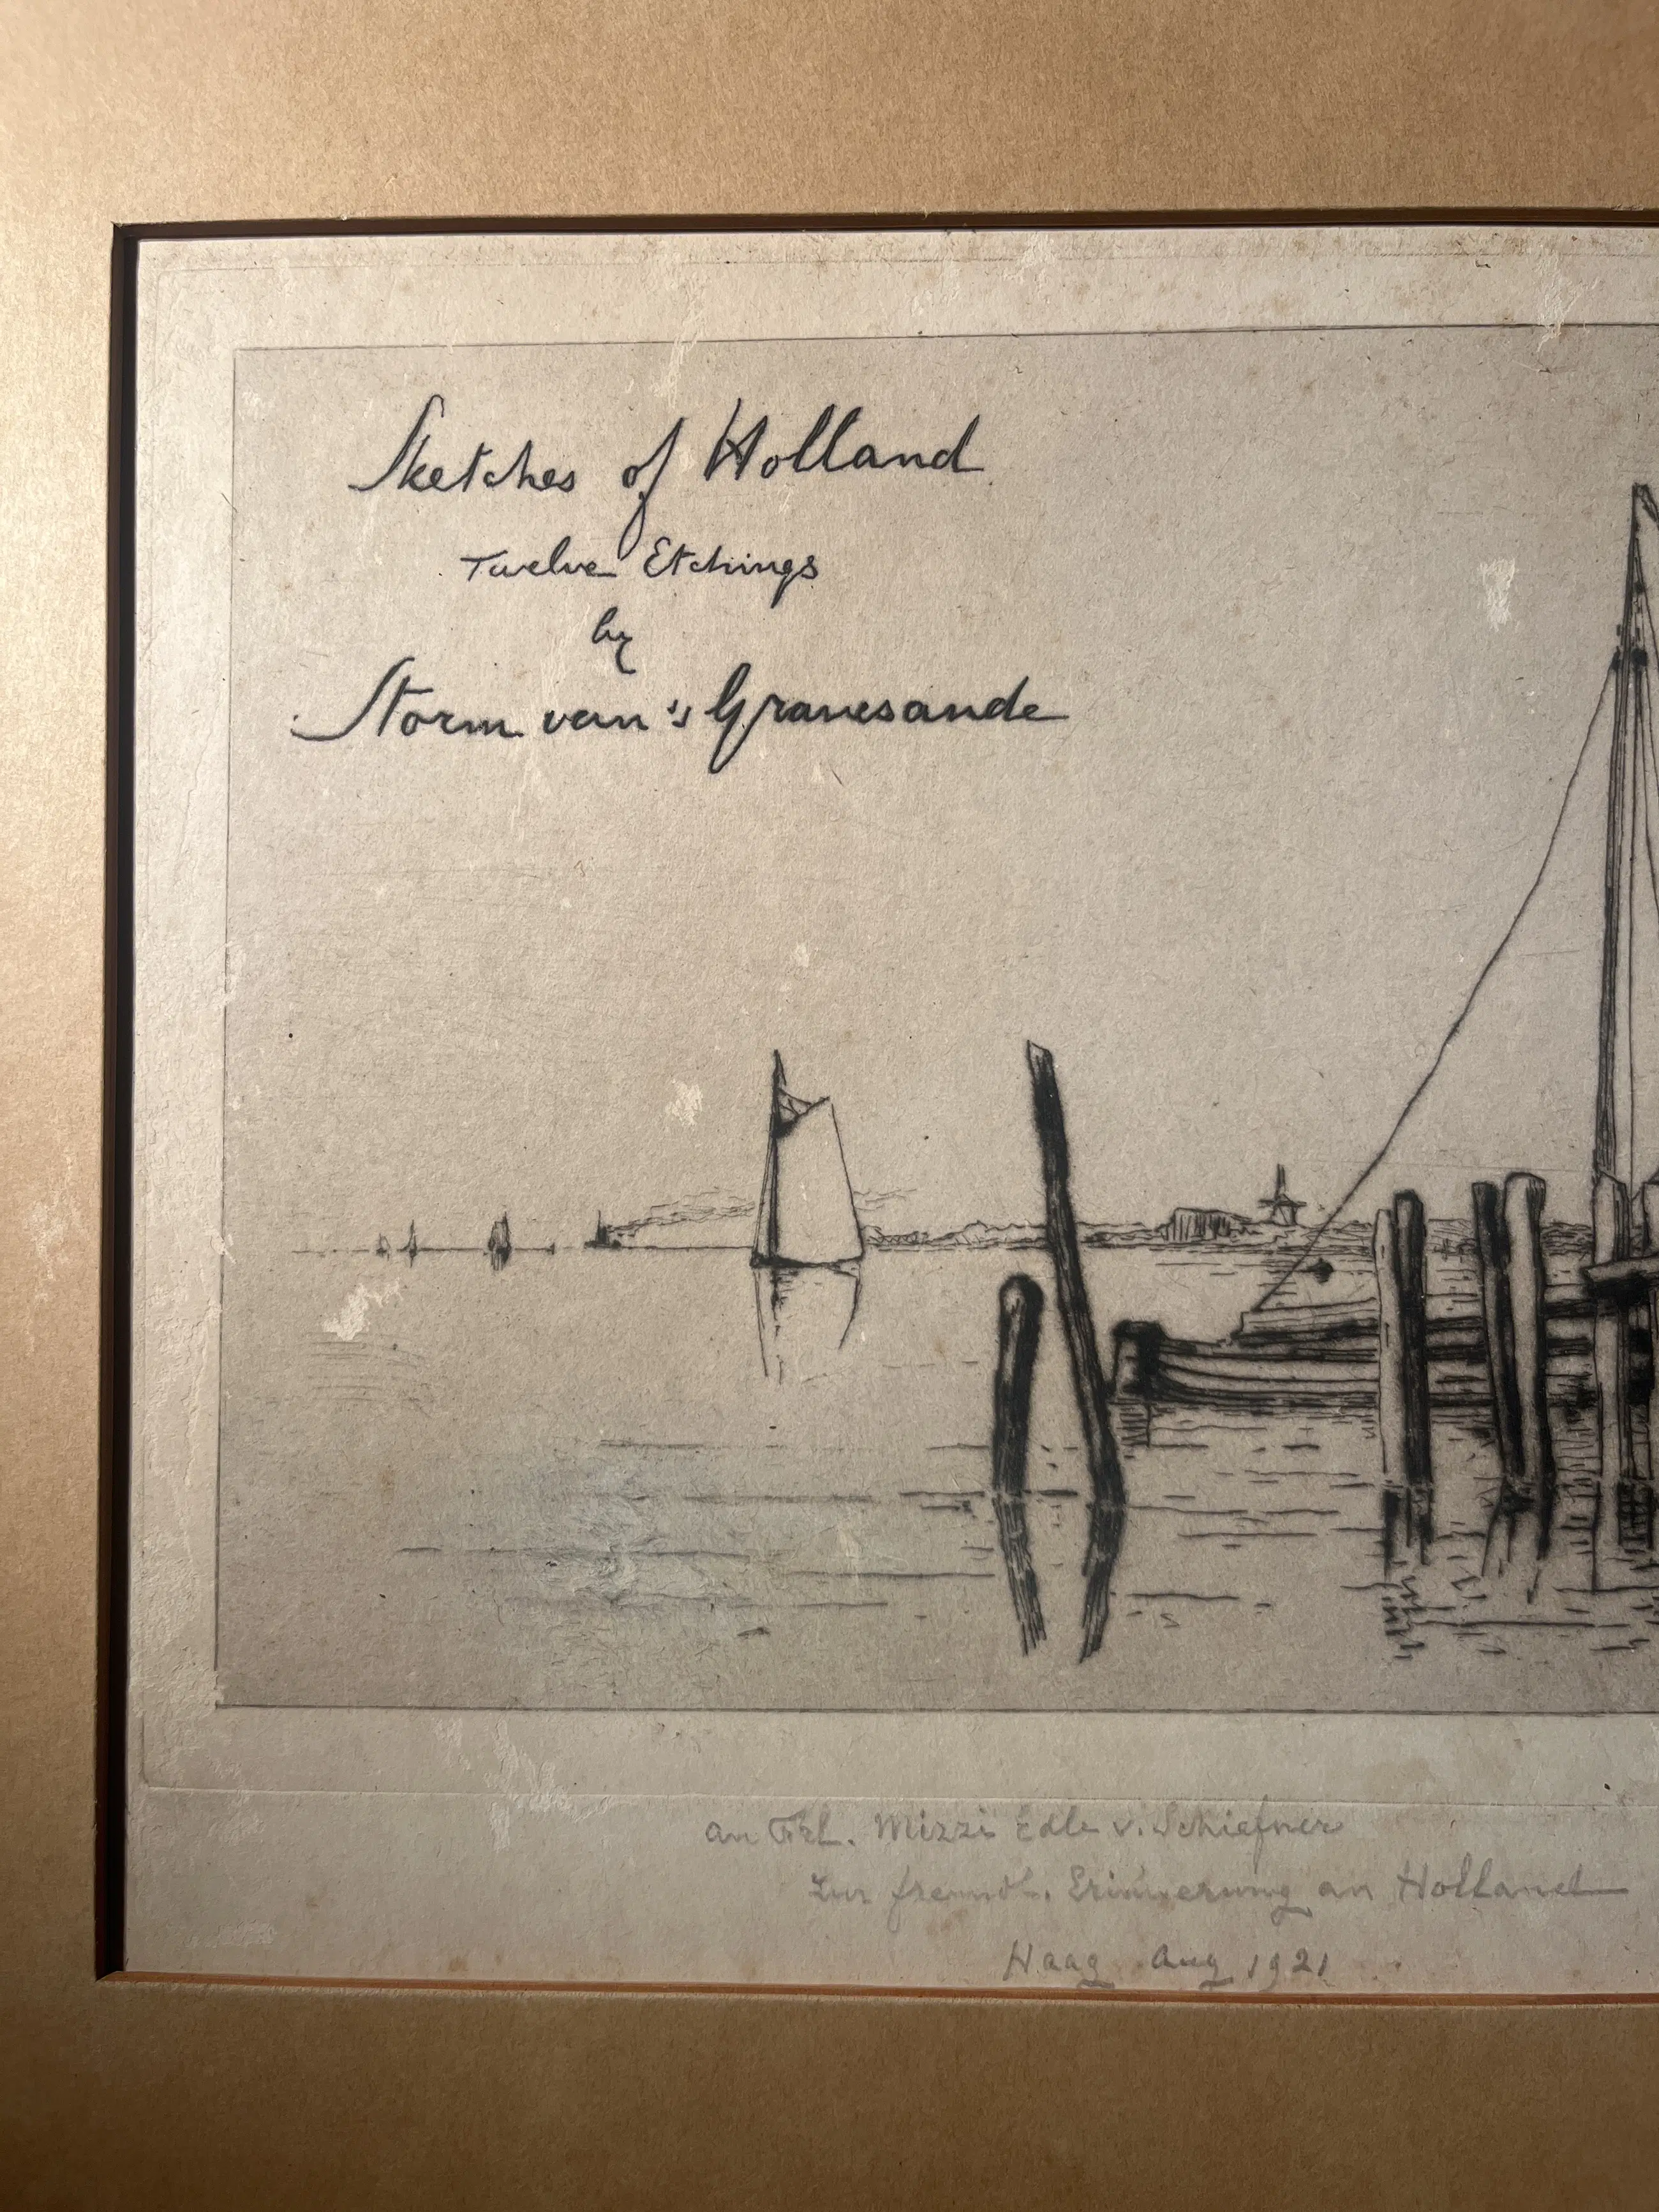 Sketches of Holland
Twelve Etchings
by
Storm van 's Gravesande
an Frl. Mizzi Edle v. Schiefner
zur freundl. Erinnerung an Holland
Haag Aug 1921